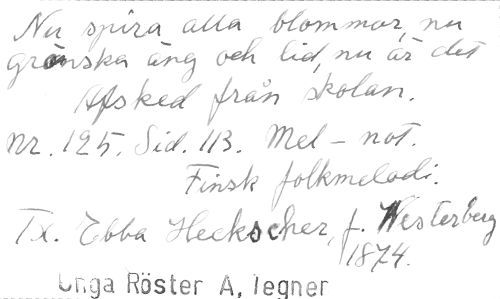 Nu spira alla blommor, nu
grönska äng och lid, nu är det
Afsked från skolan.
Nr. 125. Sid. 113. Mel - not.
Finsk folkmelodi.
Tx. Ebba Heckscher, f. Westerberg
1874.
Unga Röster A, Tegner